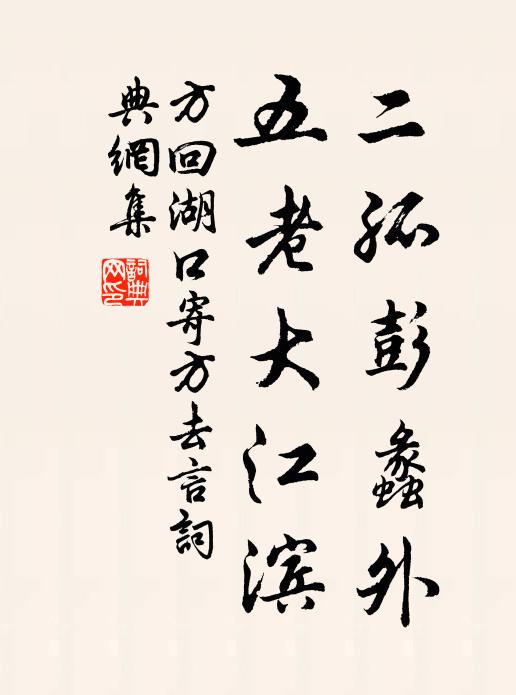 二孤彭蠡外
五老大江滨
方回湖口寄方去言詞
典網集
詞典網印